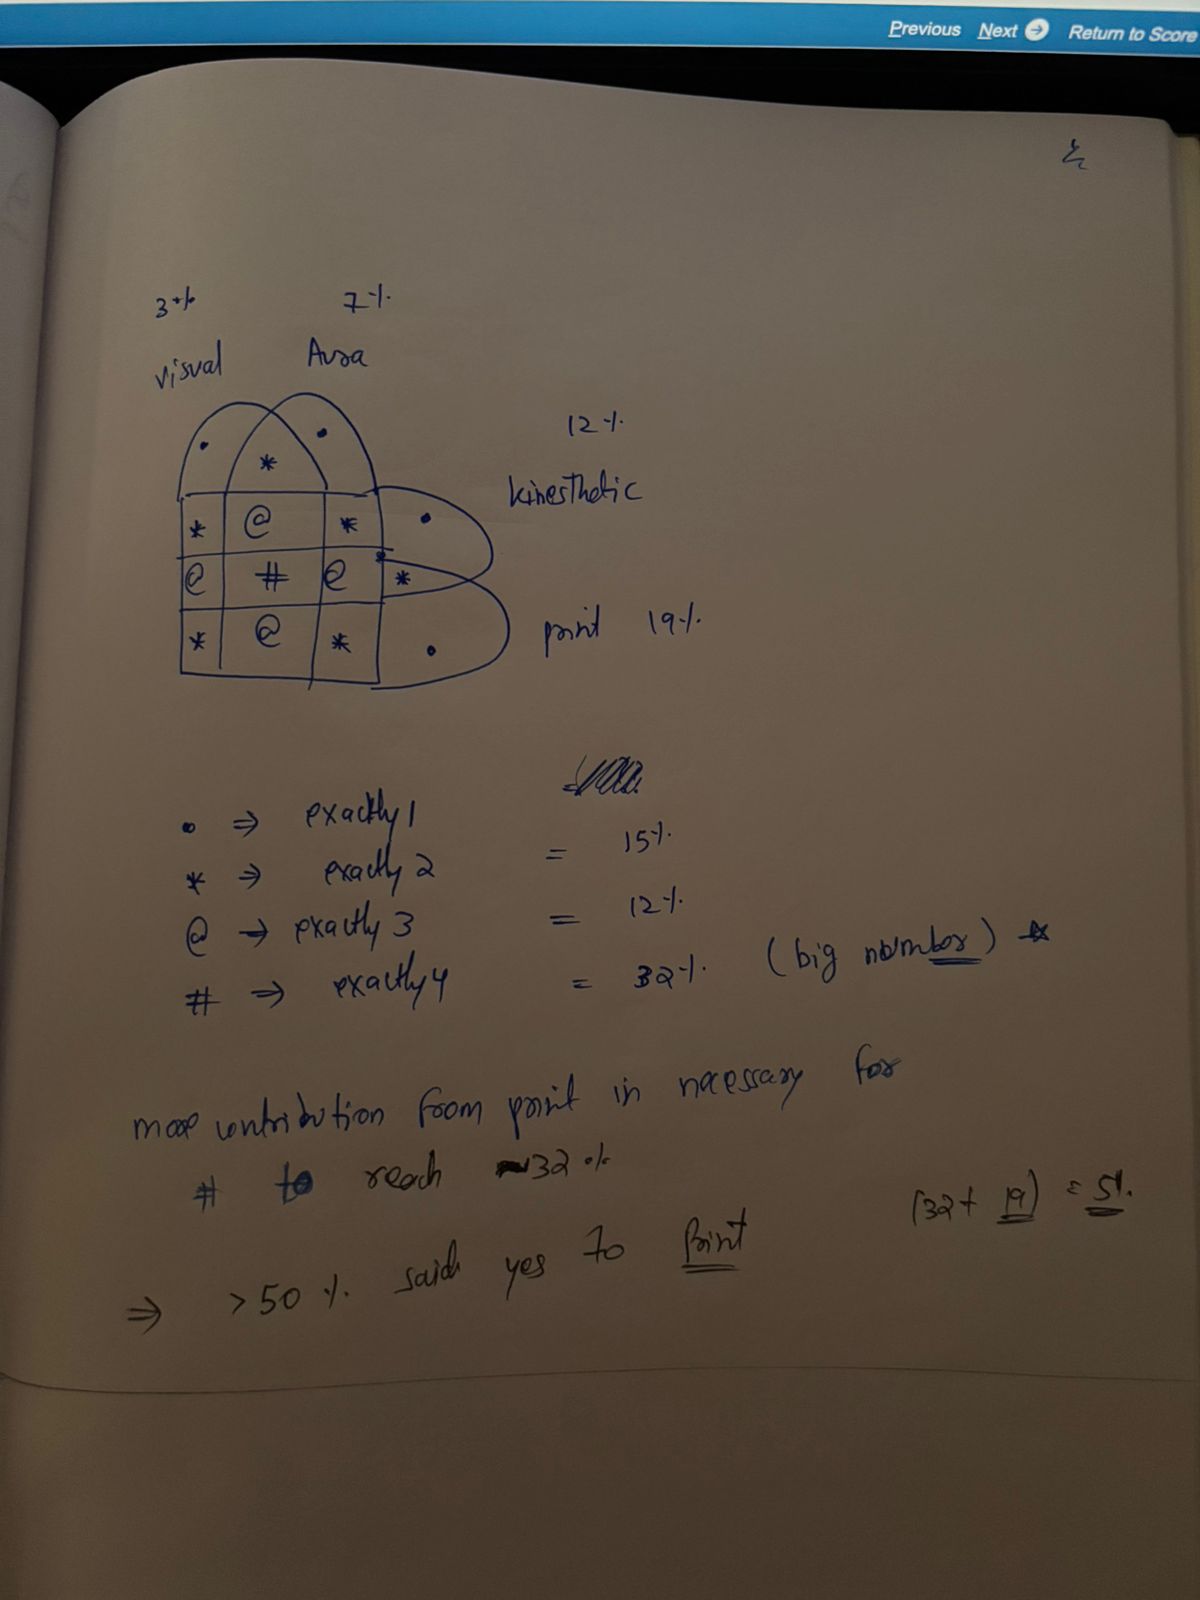 Previous Next Return to Score
3% 7%
visual Aura
12%
kinesthetic
• •
*
* @ * •
@ # @ *
* @ * •
print 19%
• ⇒ exactly 1
* ⇒ exactly 2 = 15%
@ → exactly 3 = 12%
# ⇒ exactly 4 = 32% (big number) *
more contribution from print in necessary for
# to reach ~32%
(32+19) = 51.
⇒ >50% said yes to Print